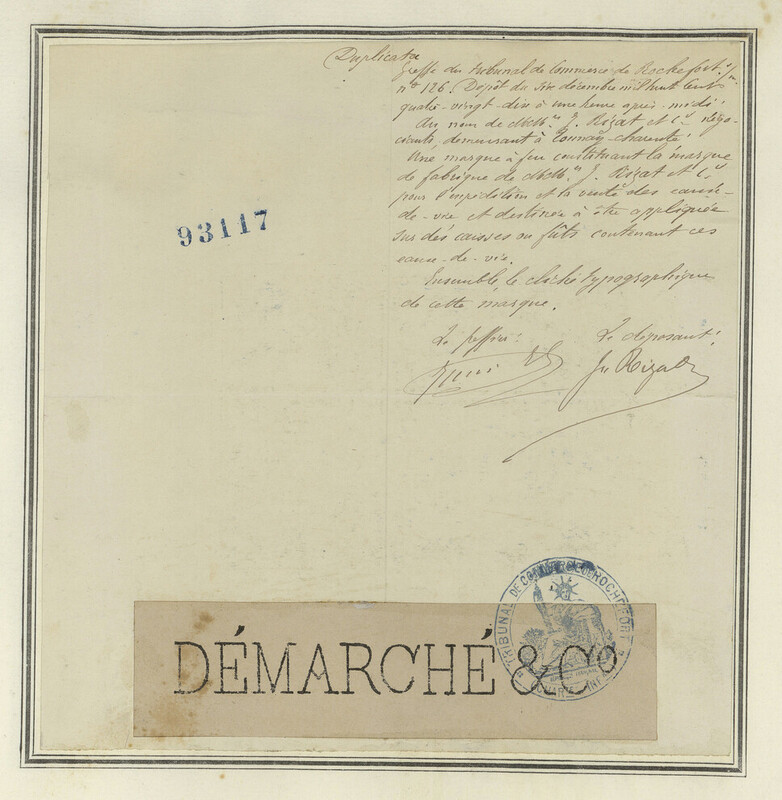 Duplicata
Greffe du tribunal de Commerce de Rochefort s/m.
nº 126. Dépôt du six décembre mil huit cent
quatre-vingt-dix à une heure après-midi.
Au nom de MMrs J. Rizat et Cie négo-
ciants, demeurant à Tonnay-Charente.
Une marque à feu constituant la marque
de fabrique de MMrs J. Rizat et Cie
pour l'expédition et la vente des eaux-
de-vie et destinée à être appliquée
sur des caisses ou fûts contenant ces
eaux-de-vie.
Ensemble, le cliché typographique
de cette marque.
93117
Le greffier: Le déposant:
Rizat
TRIBUNAL DE COMMERCE DE ROCHEFORT
CHARTE INFRE
DÉMARCHÉ & Co